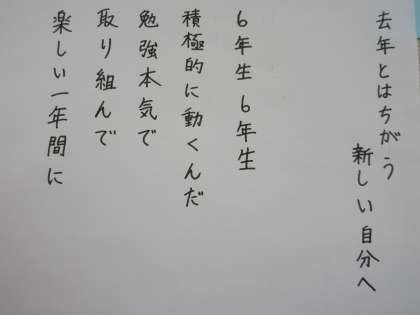 去年とはちがう
新しい自分へ
6年生6年生
積極的に動くんだ
勉強本気で
取り組んで
楽しい一年間に